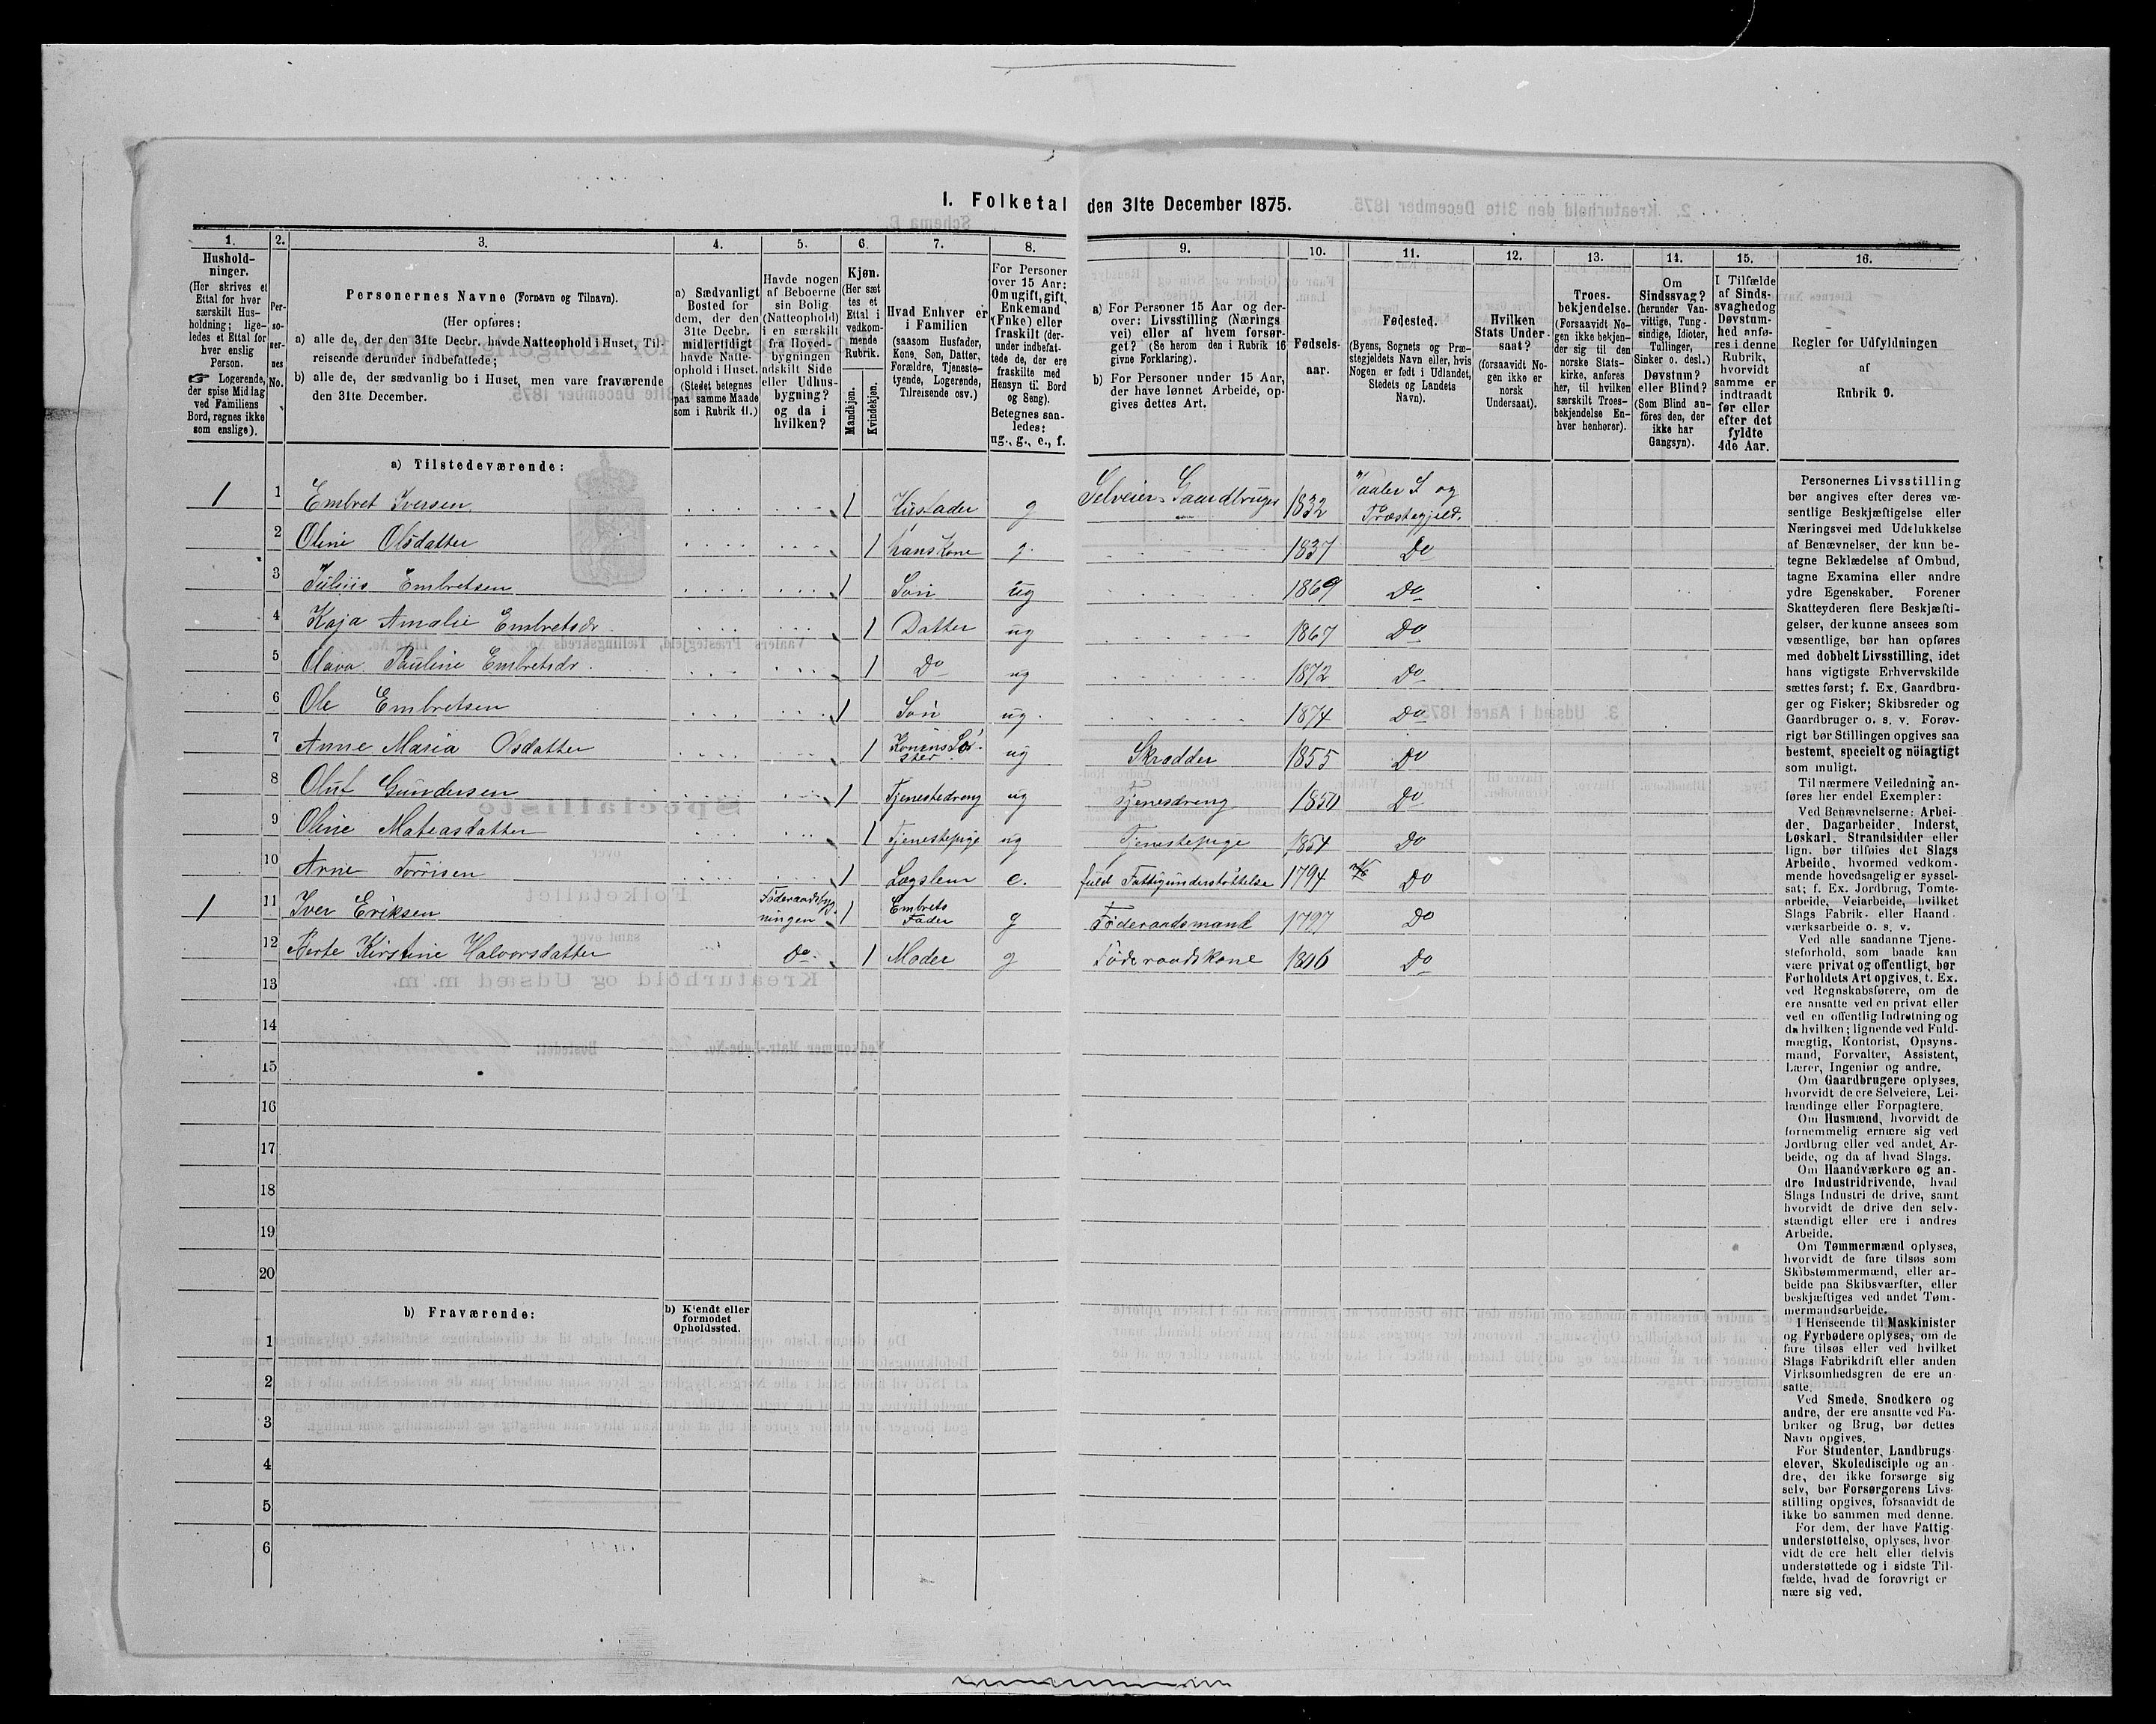 I. Folketal den 31te December 1875.
1. 2. 3. 4. 5. 6. 7. 8. 9. 10. 11. 12. 13. 14. 15. 16.
Hushold-
ninger.
(Her skrives et
Ettal for hver
særskilt Hus-
holdning; lige-
ledes et Ettal for
hver enslig
Person.
☞ Logerende,
der spise Middag
ved Familiens
Bord, regnes ikke
som enslige).
Per-
so-
ner-
nes
No.
Personernes Navne (Fornavn og Tilnavn).
(Her opføres:
a) alle de, der den 31te Decbr. havde Natteophold i Huset, Til-
reisende derunder indbefattede;
b) alle de, der sædvanlig bo i Huset, men vare fraværende
den 31te December.
a) Sædvanligt
Bosted for
dem, der den
31te Decbr.
midlertidigt
havde Natte-
ophold i Huset.
(Stedet betegnes
paa samme Maade
som i Rubrik 11.)
Havde nogen
af Beboerne
sin Bolig
(Natteophold)
i en særskilt
fra Hoved-
bygningen
adskilt Side
eller Udhus-
bygning?
og da i
hvilken?
Kjøn.
(Her sæt
tes et
Ettal i
vedkom-
mende
Rubrik.
Mandkjøn.
Kvindekjøn.
Hvad Enhver er
i Familien
(saasom Husfader,
Kone, Søn, Datter,
Forældre, Tjeneste-
tyende, Logerende,
Tilreisende osv.)
For Personer
over 15 Aar:
Om ugift, gift,
Enkemand
(Enke) eller
fraskilt (der-
under indbefat-
tede de, der ere
fraskilte med
Hensyn til Bord
og Seng).
Betegnes saa-
ledes:
ug., g., e., f.
a) For Personer 15 Aar og der-
over: Livsstilling (Nærings
vei) eller af hvem forsør-
get? (Se herom den i Rubrik 16
givne Forklaring).
b) For Personer under 15 Aar,
der have lønnet Arbeide, op-
gives dettes Art.
Fødsels-
aar.
Fødested.
(Byens, Sognets og Præ-
stegjeldets Navn eller, hvis
Nogen er født i Udlandet,
Stedets og Landets
Navn).
Hvilken
Stats Under-
saat?
(forsaavidt No-
gen ikke er
norsk
Undersaat).
Troes-
bekjendelse.
(Forsaavidt No-
gen ikke bekjen-
der sig til den
norske Stats-
kirke, anføres
her, til hvilken
særskilt Troes-
bekjendelse En-
hver henhører).
Om
Sindssvag?
(herunder Van-
vittige, Tung-
sindige, Idioter,
Tullinger,
Sinker o. desl.)
Døvstum?
eller Blind?
(Som Blind an-
føres den, der
ikke har
Gangsyn).
I Tilfælde
af Sinds-
svaghed og
Døvstum-
hed anfø-
res i denne
Rubrik,
hvorvidt
samme er
indtraadt
før eller
efter det
fyldte
4de Aar.
Regler for Udfyldningen
af
Rubrik 9.
a) Tilstedeværende:
1 1 Embret Iversen 1 Husfader g Selveier Gaardbruger 1832 Vaaler S og Præstegjeld.
2 Oline Olsdatter 1 hans Kone g. 1837 Do
3 Julius Embretsen 1 Søn ug 1869 Do
4 Kaja Amalie Embretsdr 1 Datter ug 1867 Do
5 Olava Pauline Embretsdr. 1 Do ug 1872 Do
6 Ole Embretsen 1 Søn ug. 1874 Do
7 Anne Maria Olsdatter 1 Konens Søster ug Skrædder 1855 Do
8 Oluf Gundersen 1 Tjenestedreng ug Tjenesdreng 1850 Do
9 Oline Mateasdatter 1 Tjenestepige ug Tjenestepige 1854 Do
10 Arne Torrisen 1 Lægslem e. fuld Fattigunderstøttelse 1794 Do
1 11 Iver Eriksen Föderaadsbygningen 1 Embrets Fader g Föderaadsmand 1797 Do
12 Berte Kirstine Halvorsdatter Do. 1 Moder g Föderaadskone 1806 Do
13
14
15
16
17
18
19
20
b) Fraværende:
b) Kjendt eller
formodet
Opholdssted.
1
2
3
4
5
6
Personernes Livsstilling
bør angives efter deres væ-
sentlige Beskjæftigelse eller
Næringsvei med Udelukkelse
af Benævnelser, der kun be-
tegne Beklædelse af Ombud,
tagne Examina eller andre
ydre Egenskaber. Forener
Skatteyderen flere Beskjæfti-
gelser, der kunne ansees som
væsentlige, bør han opføres
med dobbelt Livsstilling, idet
hans vigtigste Erhvervskilde
sættes først; f. Ex. Gaardbru-
ger og Fisker; Skibsreder og
Gaardbruger o. s. v. Forøv-
rigt bør Stillingen opgives saa
bestemt, specielt og nöiagtigt
som muligt.
Til nærmere Veiledning an-
føres her endel Exempler:
Ved Benævnelserne: Arbei-
der, Dagarbeider, Inderst,
Løskarl, Strandsidder eller
lign. bør tilføies det Slags
Arbeide, hvormed vedkom-
mende hovedsagelig er syssel-
sat; f. Ex. Jordbrug, Tomte-
arbeide, Veiarbeide, hvilket
Slags Fabrik- eller Haand-
værksarbeide o. s. v.
Ved alle saadanne Tjene-
steforhold, som baade kan
være privat og offentligt, bør
Forholdets Art opgives, t. Ex.
ved Regnskabsførere, om de
ere ansatte ved en privat eller
ved en offentlig Indretning og
da hvilken; lignende ved Fuld-
mægtig, Kontorist, Opsyns-
mand, Forvalter, Assistent,
Lærer, Ingeniør og andre.
Om Gaardbrugere oplyses,
hvorvidt de ere Selveiere, Lei-
lændinge eller Forpagtere.
Om Husmænd, hvorvidt de
fornemmelig ernære sig ved
Jordbrug eller ved andet Ar-
beide, og da af hvad Slags.
Om Haandværkere og an-
dre Industridrivende, hvad
Slags Industri de drive, samt
hvorvidt de drive den selv-
stændigt eller ere i andres
Arbeide.
Om Tømmermænd oplyses,
hvorvidt de fare tilsøs som
Skibstømmermænd, eller ar-
beide paa Skibsværfter, eller
beskjæftiges ved andet Tøm-
mermandsarbeide.
I Henseende til Maskinister
og Fyrbødere oplyses, om de
fare tilsøs eller ved hvilket
Slags Fabrikdrift eller anden
Virksomhedsgren de ere an-
satte.
Ved Smede, Snedkere og
andre, der ere ansatte ved Fa-
briker og Brug, bør dettes
Navn opgives.
For Studenter, Landbrugs-
elever, Skoledisciple og an-
dre, der ikke forsørge sig
selv, bør Forsørgerens Livs-
stilling opgives, forsaavidt de
ikke bo sammen med denne.
For dem, der have Fattig-
understøttelse, oplyses, hvor-
vidt de ere helt eller delvis
understøttede og i sidste Til-
fælde, hvad de forøvrigt er-
nære sig ved.